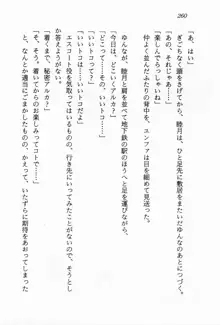 260
「あ、はい」
ぎこちなく頭を下げてから、睦月はひと足先に敷居をまたいだゆんなのあとにつづく。
「あの、それじゃあ……」
「楽しんでらっしゃいね」
仲よく並んだふたりの背中を、ユンファは目を細めて見送った。
「今日は、どこにいくアルカ?」
ゆんなが、睦月と肩を並べて地下鉄の駅のほうへと足を運びながら、
「どこって……いいトコ」
「いいトコって?」
エスコート役を気取ってはいるものの、行き先についてみたことがないので、そうとしか答えようがない。
「着くまで、秘密アルカ?」
「まあ、そう。着いてからのお楽しみってコトで……」
と、なんとか適当にごまかしたものの、かえって、いたずらに期待をあおることに